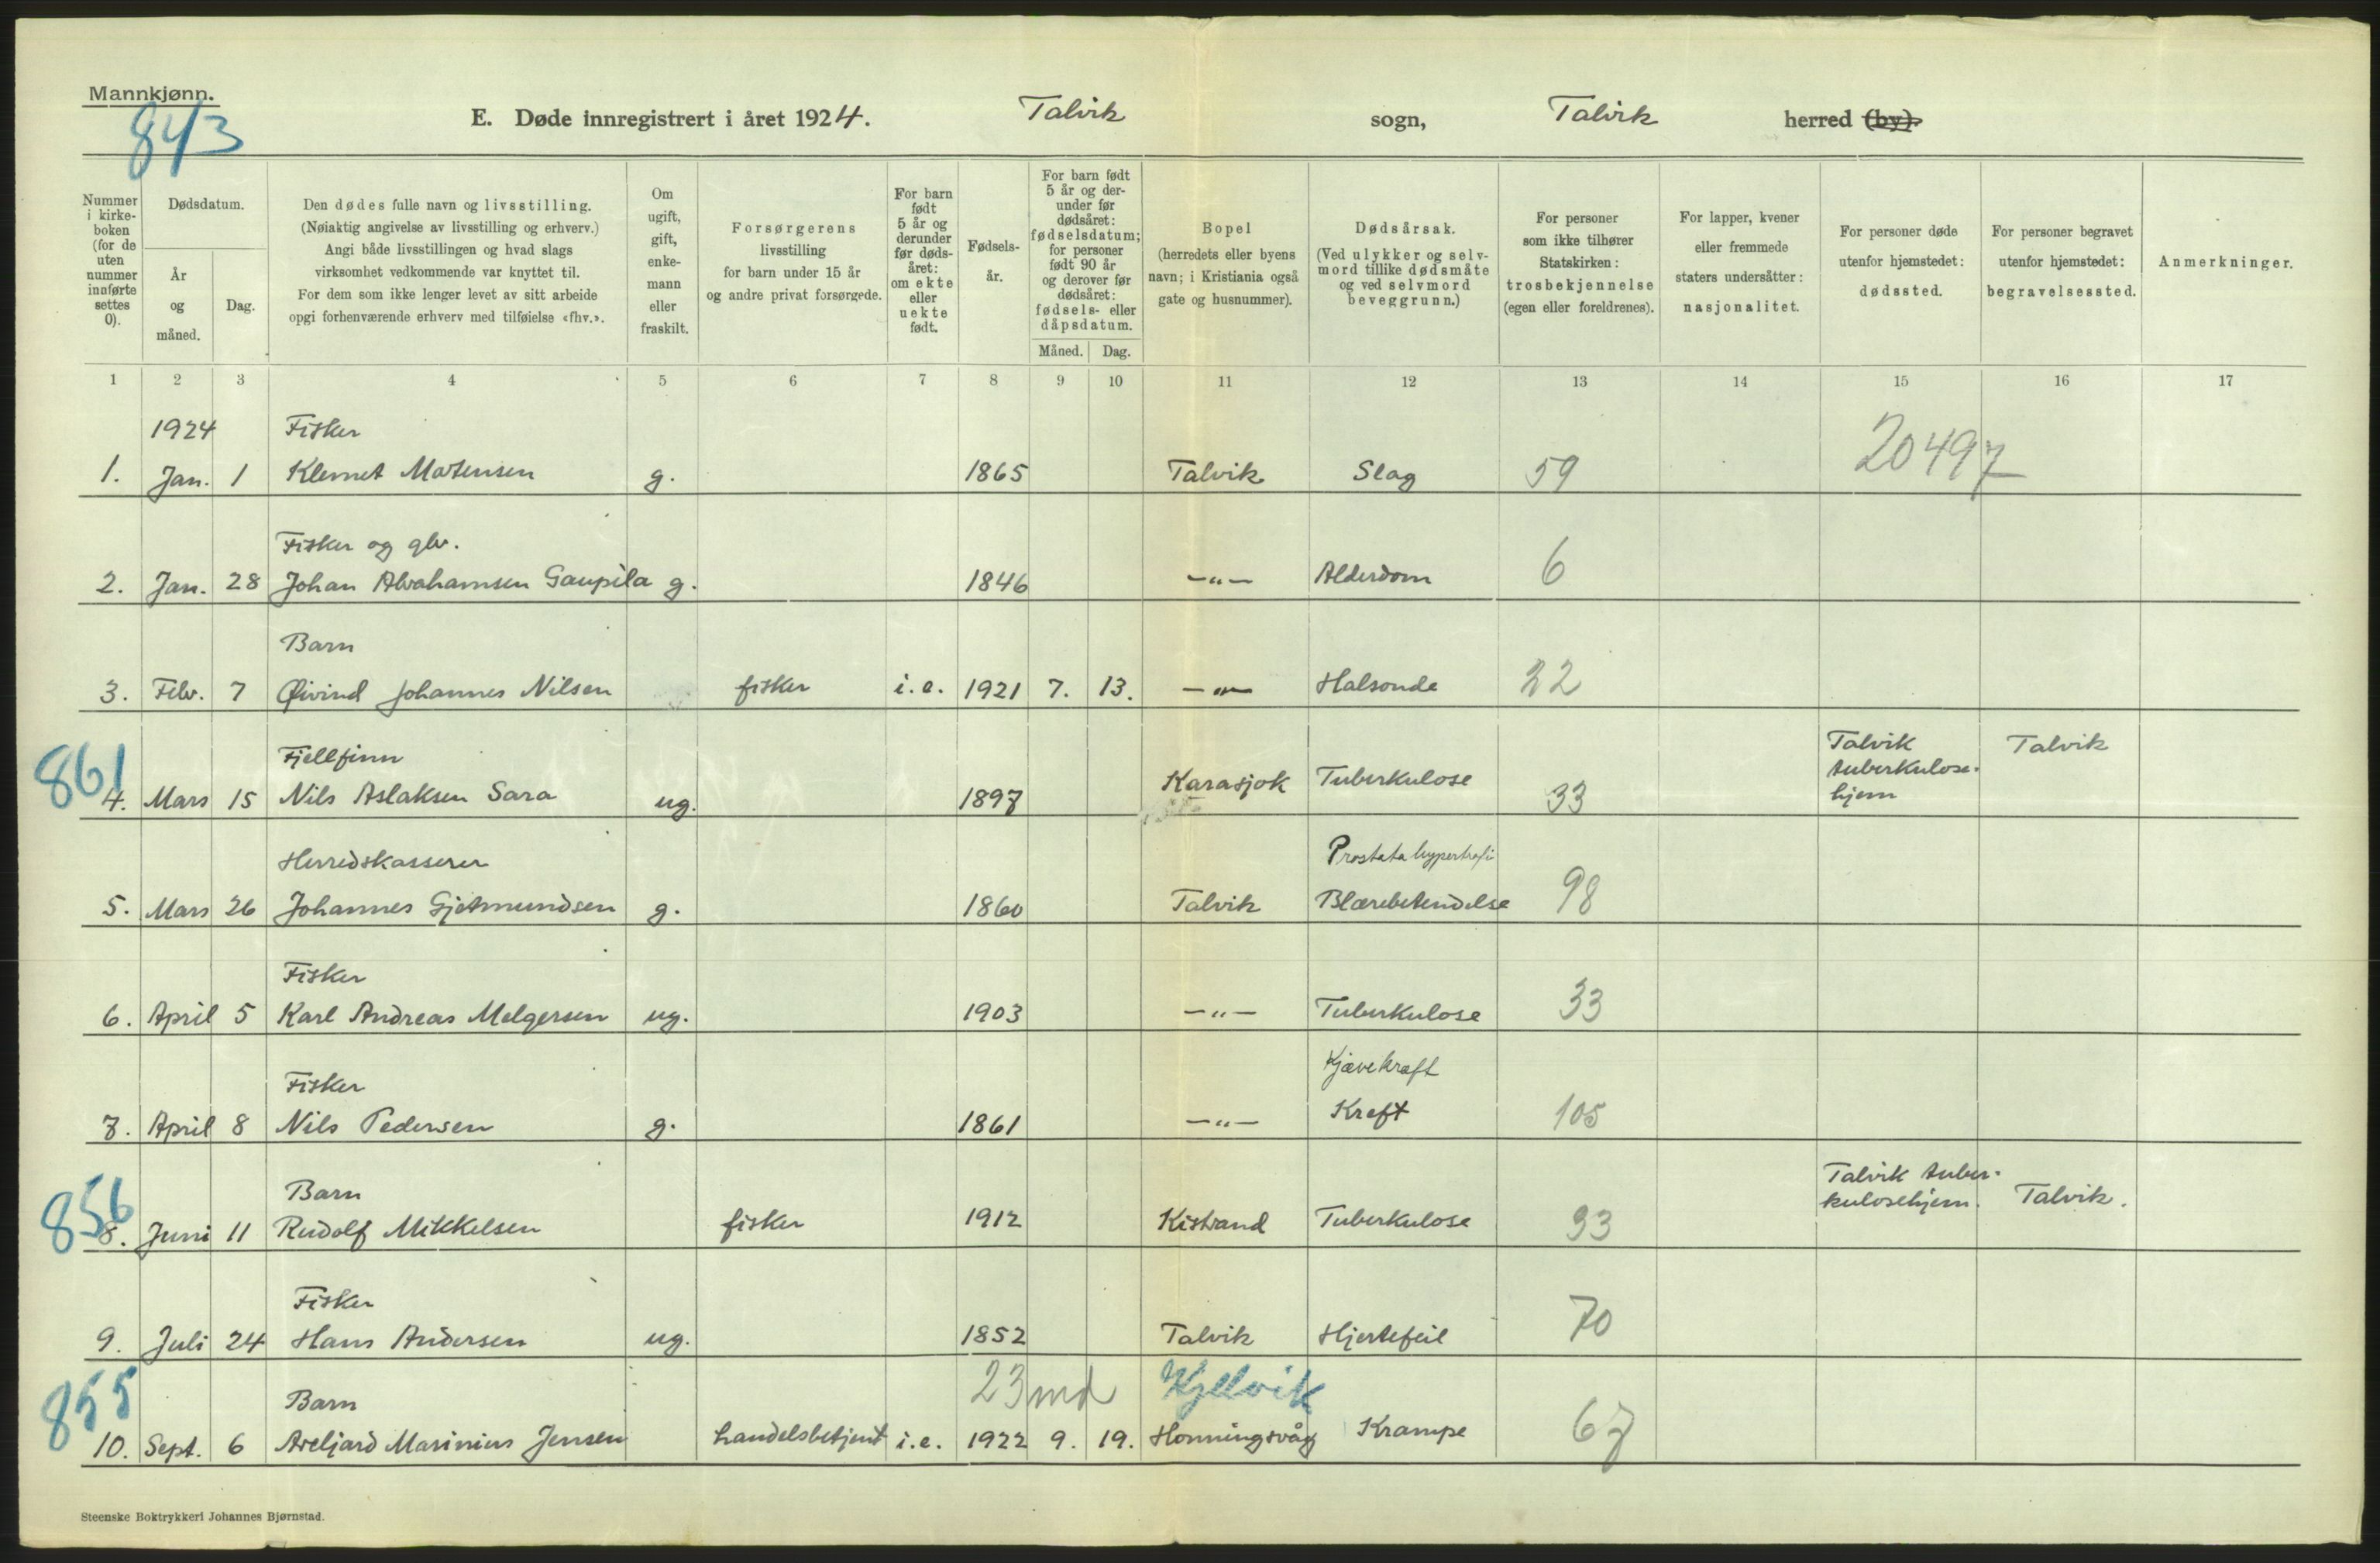 Mannkjønn.
843
E. Døde innregistrert i året 1924. Talvik sogn, Talvik herred (by).
Nummer i kirkeboken (for de uten nummer innførte settes 0).
Dødsdatum.
År og måned.
Dag.
Den dødes fulle navn og livsstilling.
(Nøiaktig angivelse av livsstilling og erhverv.)
Angi både livsstillingen og hvad slags
virksomhet vedkommende var knyttet til.
For dem som ikke lenger levet av sitt arbeide
opgi forhenværende erhverv med tilføielse «fhv.».
Om ugift, gift, enkemann eller fraskilt.
Forsørgerens
livsstilling
for barn under 15 år
og andre privat forsørgede.
For barn født 5 år og derunder før dødsåret: om ekte eller uekte født.
Fødselsår.
For barn født 5 år og derunder før dødsåret: fødselsdatum; for personer født 90 år og derover før dødsåret: fødsels- eller dåpsdatum.
Måned. Dag.
Bopel
(herredets eller byens
navn; i Kristiania også
gate og husnummer).
Dødsårsak.
(Ved ulykker og selvmord tillike dødsmåte
og ved selvmord
beveggrunn.)
For personer
som ikke tilhører
Statskirken:
trosbekjennelse
(egen eller foreldrenes).
For lapper, kvener
eller fremmede
staters undersåtter:
nasjonalitet.
For personer døde
utenfor hjemstedet:
dødssted.
For personer begravet
utenfor hjemstedet:
begravelsessted.
Anmerkninger.
1 2 3 4 5 6 7 8 9 10 11 12 13 14 15 16 17
1924 Fisker 20497
1. Jan. 1 Klemet Matensen g. 1865 Talvik Slag 59
Fisker og gbr.
2. Jan. 28 Johan Abrahamsen Gaupila g. 1846 —"— Alderdom 6
Barn
3. Febr. 7 Øivind Johannes Nilsen fisker i.e. 1921 7. 13. —"— Halsonde 22
861 Fjellfinn Talvik tuberkulosehjem Talvik
4. Mars 15 Nils Aslaksen Sara ug. 1897 Karasjok Tuberkulose 33
Herredskasserer Prostatahypertrofi
5. Mars 26 Johannes Gjetmundsen g. 1860 Talvik Blærebetendelse 98
Fisker
6. April 5 Karl Andreas Melgersen ug. 1903 —"— Tuberkulose 33
Fisker Kjævekræft
7. April 8 Nils Pedersen g. 1861 —"— Kreft 105
856 Barn Talvik tuberkulosehjem. Talvik.
8. Juni 11 Rudolf Mikkelsen fisker 1912 Kistrand Tuberkulose 33
Fisker
9. Juli 24 Hans Andersen ug. 1852 Talvik Hjertefeil 70
855 Barn 23 md Kjelvik
10. Sept. 6 Areljard Marinius Jensen handelsbetjent i.e. 1922 9. 19. Honningsvåg Krampe 67
Steenske Boktrykkeri Johannes Bjørnstad.